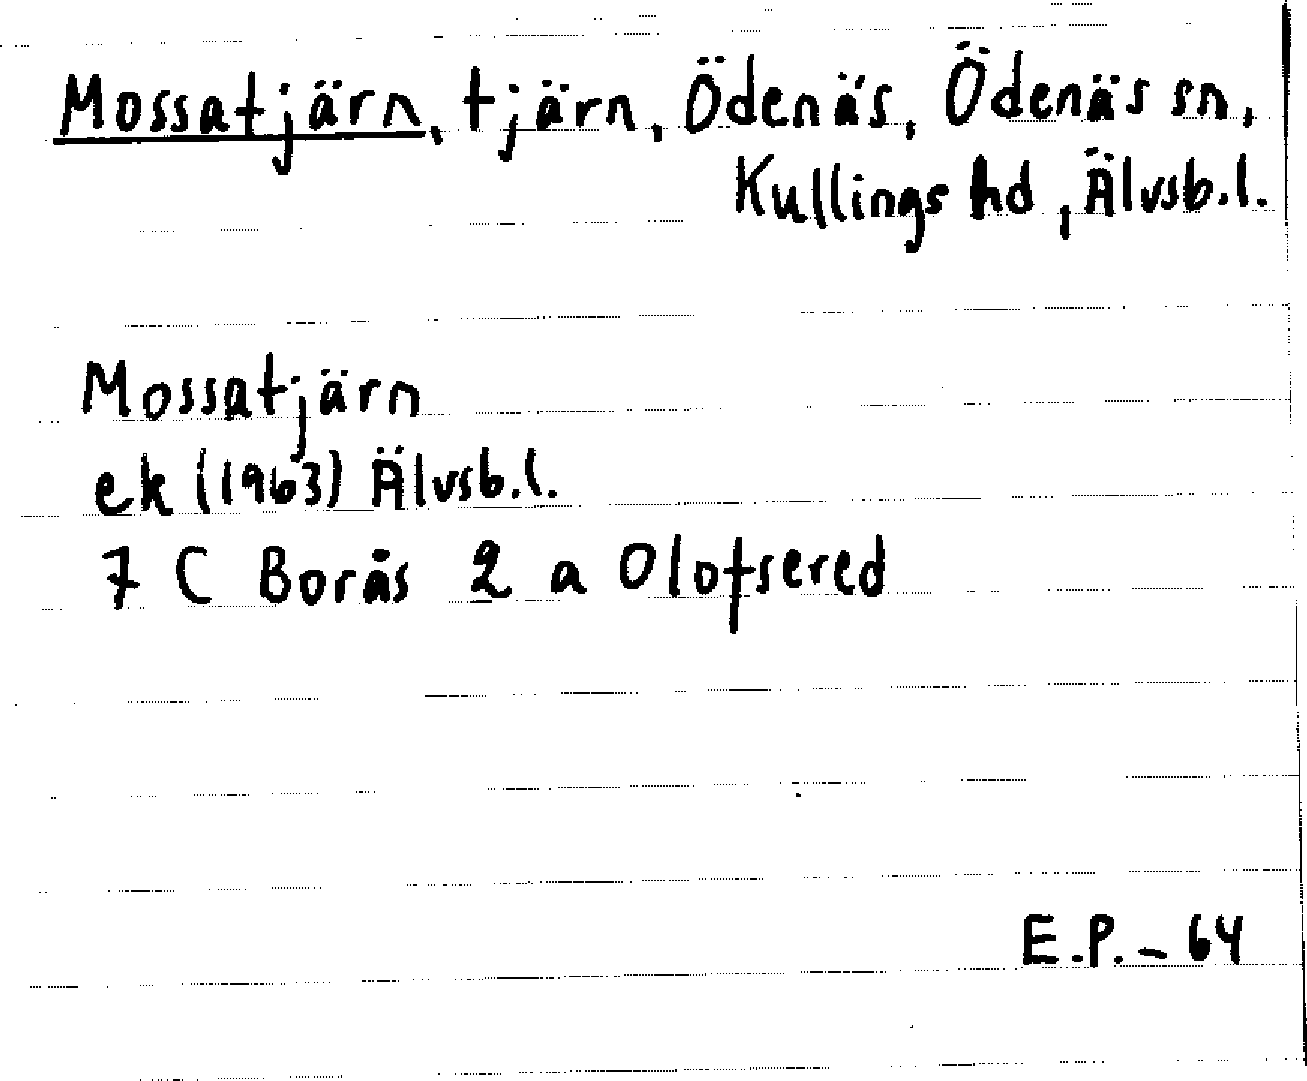 Mossatjärn, tjärn, Ödenäs, Ödenäs sn,
Kullings hd, Älvsb.l.
Mossatjärn
ek (1963) Älvsb.l.
7 C Borås 2 a Olofsered
E.P. - 64